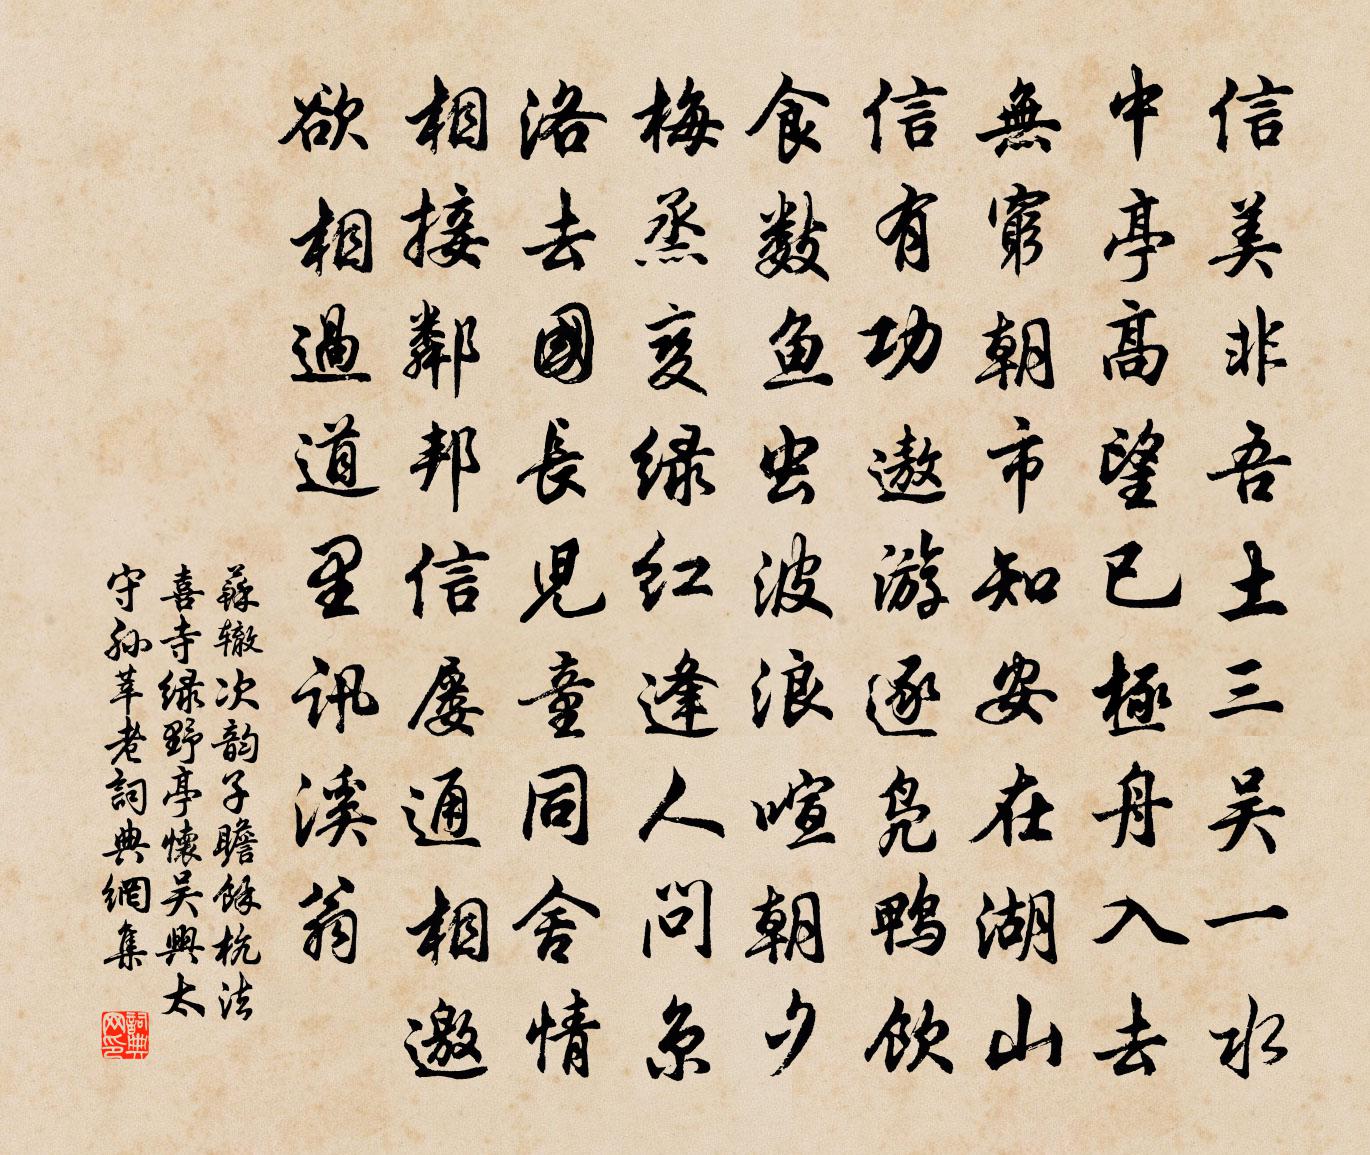 信美非吾土三吴一水
中亭高望已極舟入去
無窮朝市知安在湖山
信有功遨游逐凫鴨飲
食數鱼虫波浪喧朝夕
梅烝变绿红逢人问京
洛去國長児童同舍情
相接鄰邦信屡通相邀
欲相過道里訊溪翁
蘇辙次韵子瞻餘杭法
喜寺绿野亭懷吴興太
守孙莘老詞典網集
詞典网印